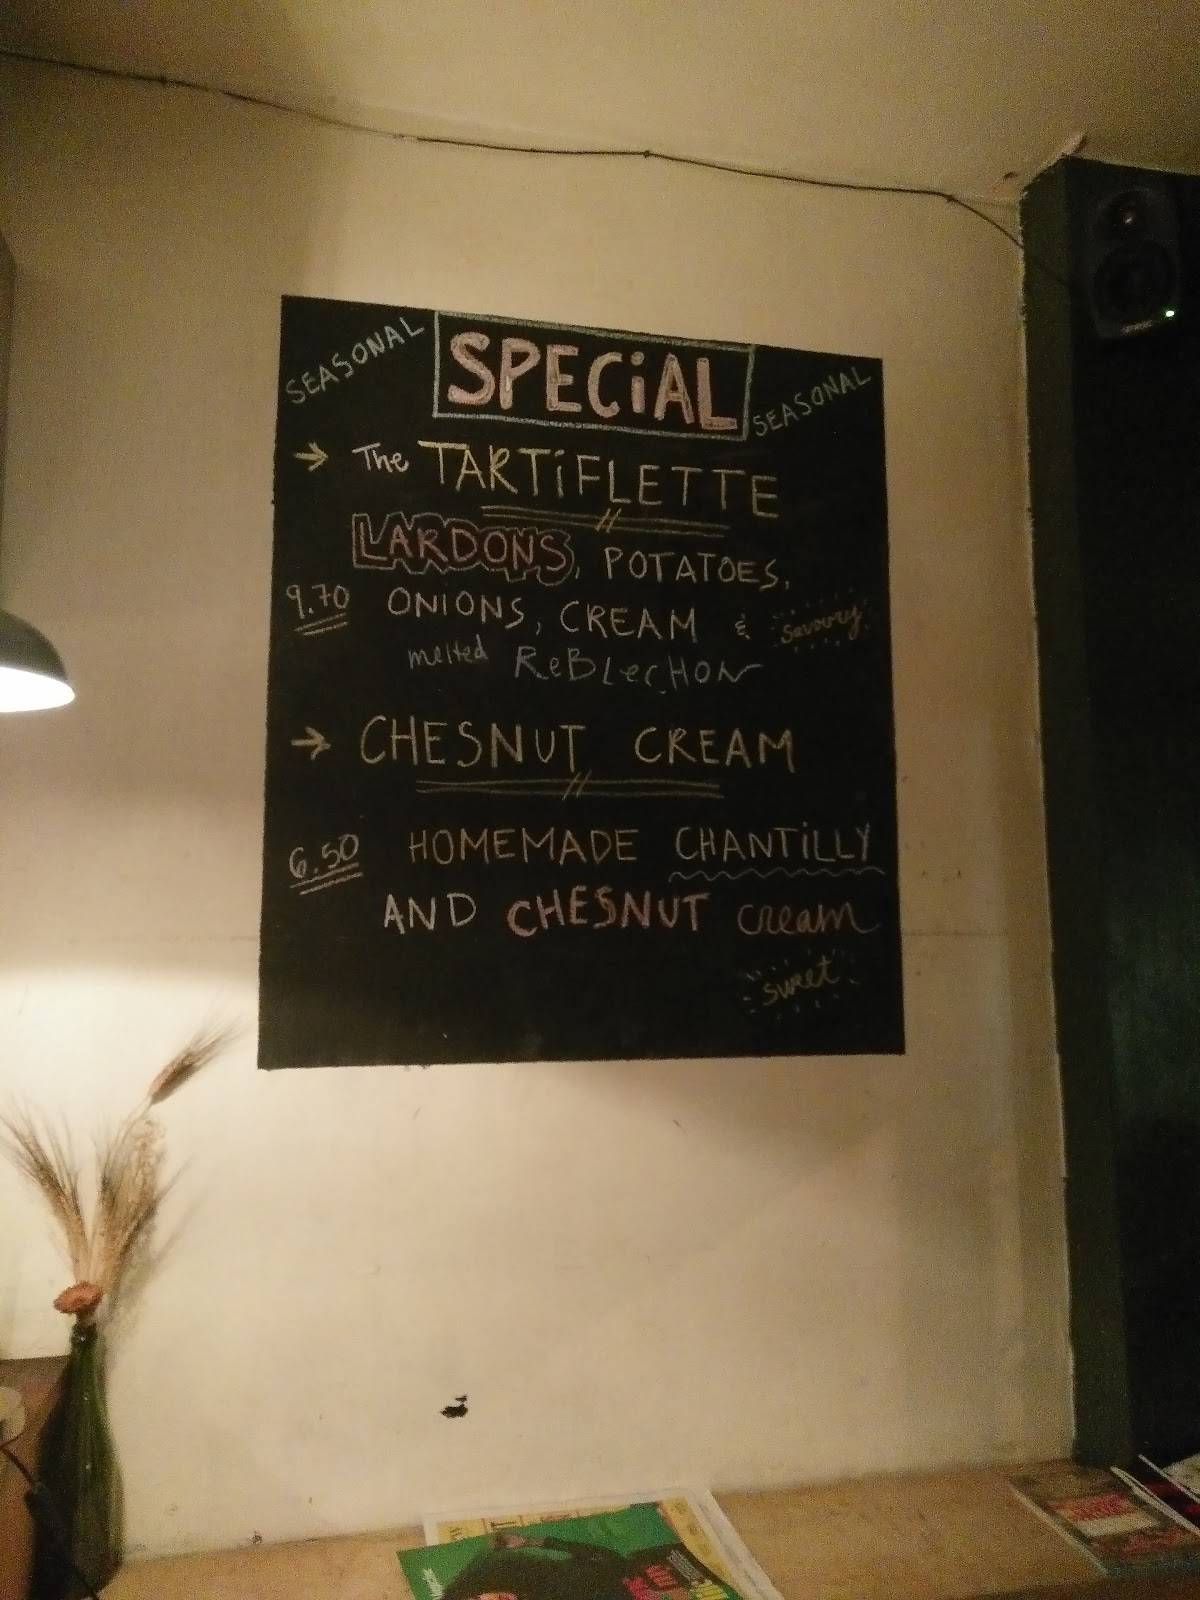 SEASONAL SPECiAL SEASONAL
→ The TARTiFLETTE
LARDONS, POTATOES,
9.70 ONIONS, CREAM & savoury
melted ReBLecHON
→ CHESNUT CREAM
6.50 HOMEMADE CHANTiLLY
AND CHESNUT cream
sweet